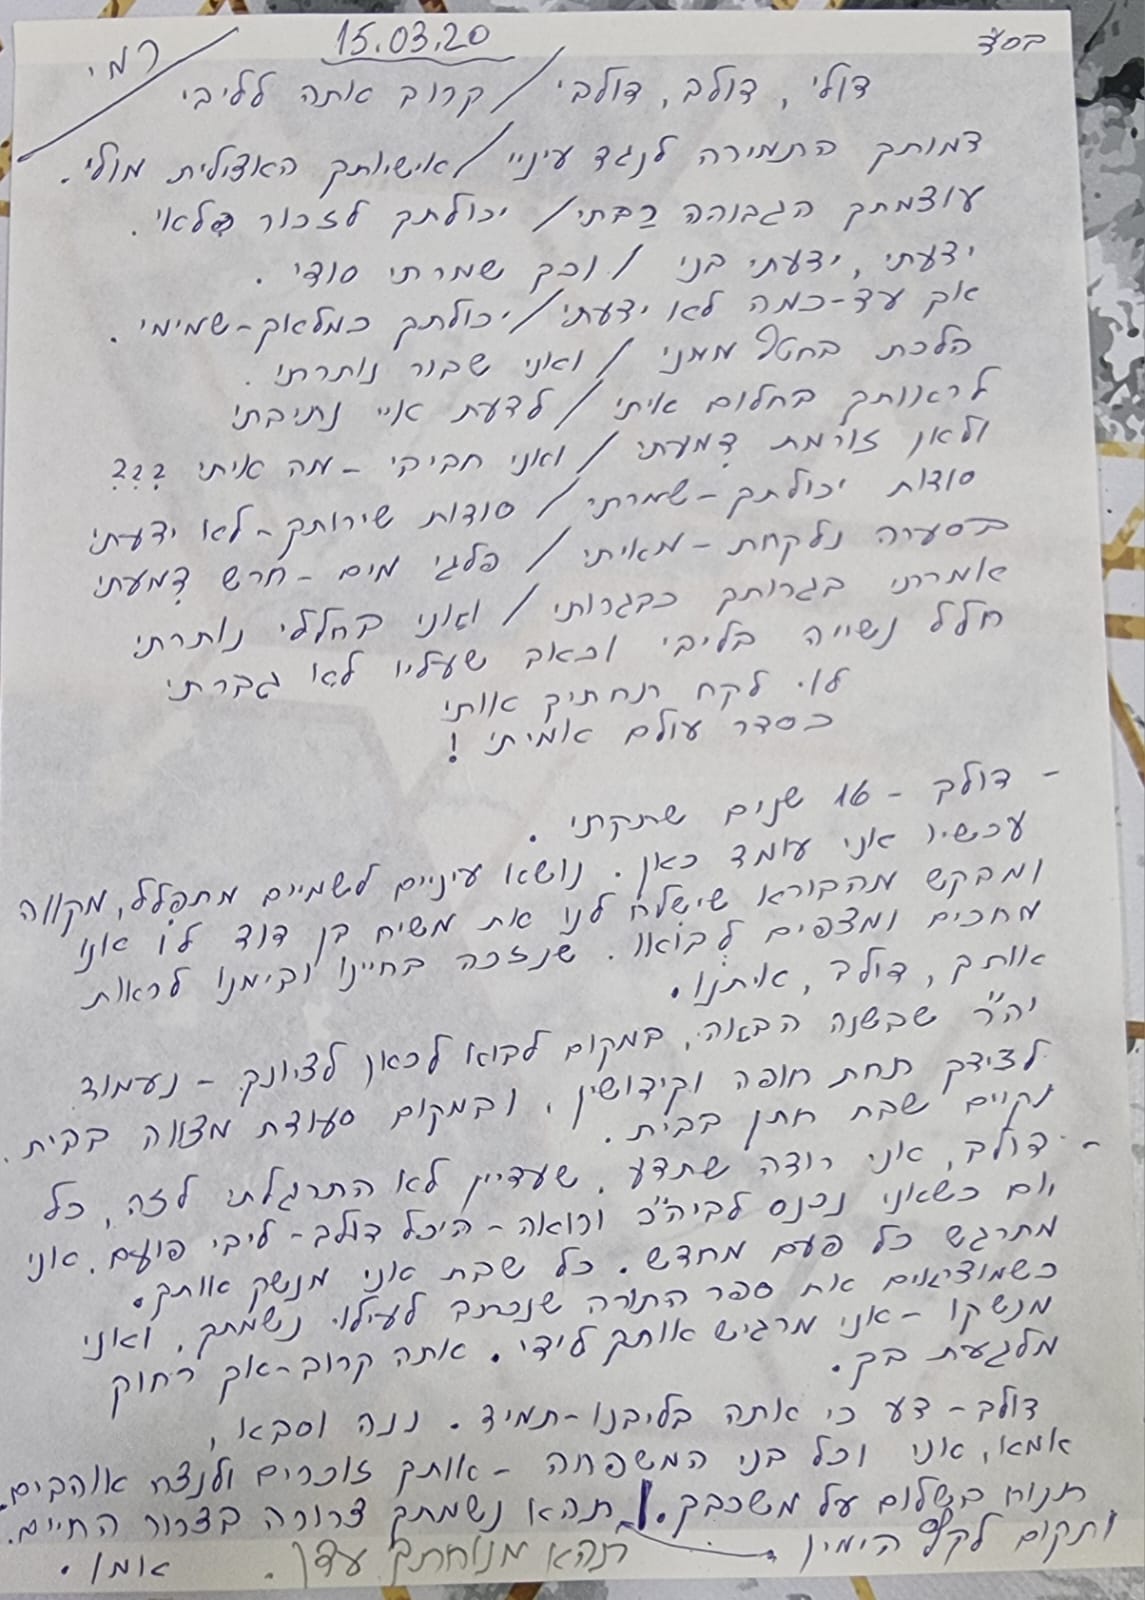 בס"ד
15.03.20
רמי
דולי, דולב, דולבי / קרוב אתה לליבי
דמותך התמירה לנגד עיניי / אישיותך האצילית מולי.
עוצמתך הגבוהה רַבתי / יכולתך לזכור פִלאי.
ידעתי, ידעתי בני / וכך שמרתי סודי.
אך עד-כמה לא ידעתי / יכולתך כמלאך-שמימי.
הלכת בחטף ממני / ואני שבור נותרתי.
לראותך בחלום איתי / לדעת איי נתיבתי
ולאן זורמת דִמעתי / ואני חביקי - מה איתי ???
סודות יכולתך - שמרתי / סודות שירותך - לא ידעתי
בסערה נלקחת - מאיתי / פלגי מים - חרש דִמעתי
אמרתי בגרותך כבגרותי / ואני בחללי נותרתי
חלל נשייה בליבי וכאב שעליו לא גברתי
לו. לקח תחתיך אותי
כסדר עולם אמיתי !
- דולב - 16 שנים שתקתי.
עכשיו אני עומד כאן. נושא עיניים לשמיים מתפלל, מקווה
ומבקש מהבורא שישלח לנו את משיח בן דוד לו אנו
מחכים ומצפים לבואו. שנזכה בחיינו ובימנו לראות
אותך, דולב, איתנו.
יה"ר שבשנה הבאה, במקום לבוא לכאן לציונך - נעמוד
לצידך תחת חופה וקידושין, ובמקום סעודת מצווה בבית.
נקיים שבת חתן בבית.
- דולב, אני רוצה שתדע, שעדיין לא התרגלתי לזה, כל
יום כשאני נכנס לביה"כ ורואה - היכל דולב - ליבי פועם, אני
מתרגש כל פעם מחדש. כל שבת אני מנשק אותך.
כשמוצאים את ספר התורה שנכתב לעילוי נשמתך, ואני
מנשקו - אני מרגיש אותך לידי. אתה קרוב-אך רחוק
מלגעת בך.
דולב - דע כי אתה בליבנו-תמיד. ננה וסבא,
אמא, אני וכל בני המשפחה - אותך זוכרים ולנצח אוהבים.
תנוח בשלום על משכבך. תהא נשמתך צרורה בצרור החיים.
ותקום לקץ הימין
תהא מנוחתך עדן. אמן.